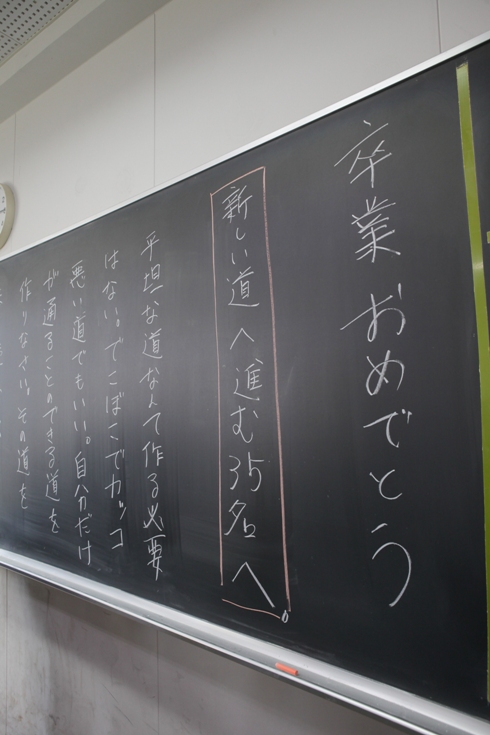 卒業おめでとう
新しい道へ進む35名へ。
平坦な道なんて作る必要
はない。でこぼこでカッコ
悪い道でもいい。自分だけ
が通ることのできる道を
作りなさい。その道を